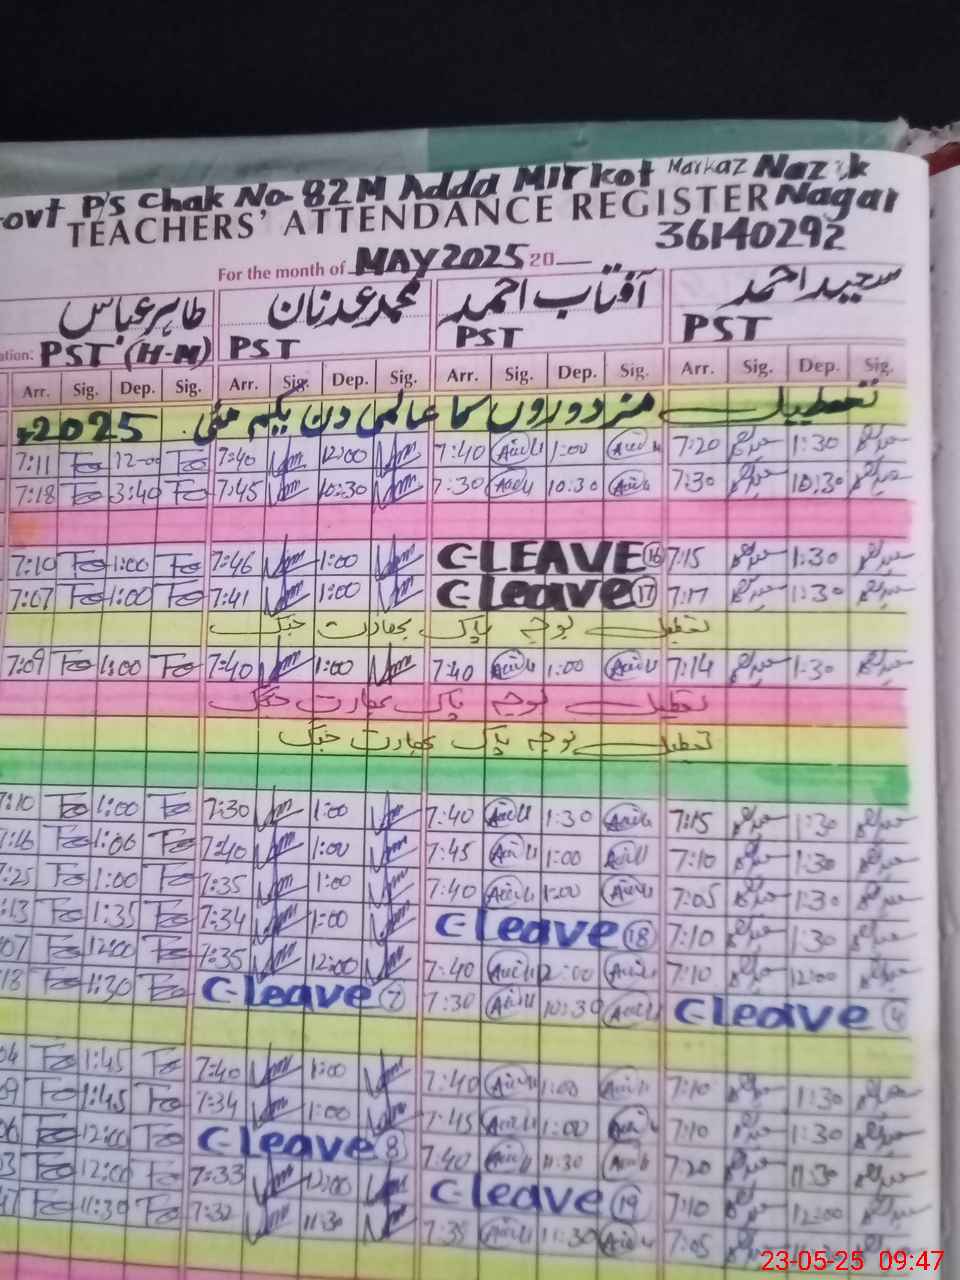 ovt P's Chak No- 82 M Adda Mirkot Markaz Naz k
TEACHERS' ATTENDANCE REGISTER Nagar
36140292
For the month of MAY 2025 20
طاہر عباس محمد عدنان آفتاب احمد سعید احمد
ation: PST (H-M) PST PST PST
Arr. Sig. Dep. Sig. Arr. Sig. Dep. Sig. Arr. Sig. Dep. Sig. Arr. Sig. Dep. Sig.
تعطیل مزدوروں کا عالمی دن یکم مئی 2025
7:11 12-00 7:40 12:00 7:40 1:00 7:20 1:30
7:18 3:40 7:45 10:30 7:30 10.30 7:30 10:30
7:10 1:00 7:46 1:00 C-LEAVE 16 7:15 1:30
7:07 1:00 7:41 1:00 C Leave 17 7:17 1:30
تعطیل بوجہ پاک بھارت جنگ
7:09 1:00 7:40 1:00 7:40 1:00 7:14 1:30
تعطیل بوجہ پاک بھارت جنگ
تعطیل بوجہ پاک بھارت جنگ
7:10 1:00 7:30 1:00 7:40 1:30 7:15 1:30
:16 1:00 7:40 1:00 7:45 1:00 7:10 1:30
:25 1:00 7:35 1:00 7:40 1:00 7:05 1:30
:13 1:35 7:34 1:00 C leave 18 7:10 1:30
:07 12:00 7:35 12:00 7:40 12:00 7:10 12:00
:18 11:30 C-leave 7 7:30 10:30 C leave 4
04 1:45 7:40 1:00 7:40 1:00 7:10 1:30
09 1:45 7:34 1:00 7:45 1:00 7:10 1:30
06 12:00 C leave 8 7:40 11:30 7:20 11:30
03 12:00 7:33 12:00 C-leave 19 7:10 12:00
11:30 7:32 11:30 7:35 11:30 7:05
23-05-25 09:47